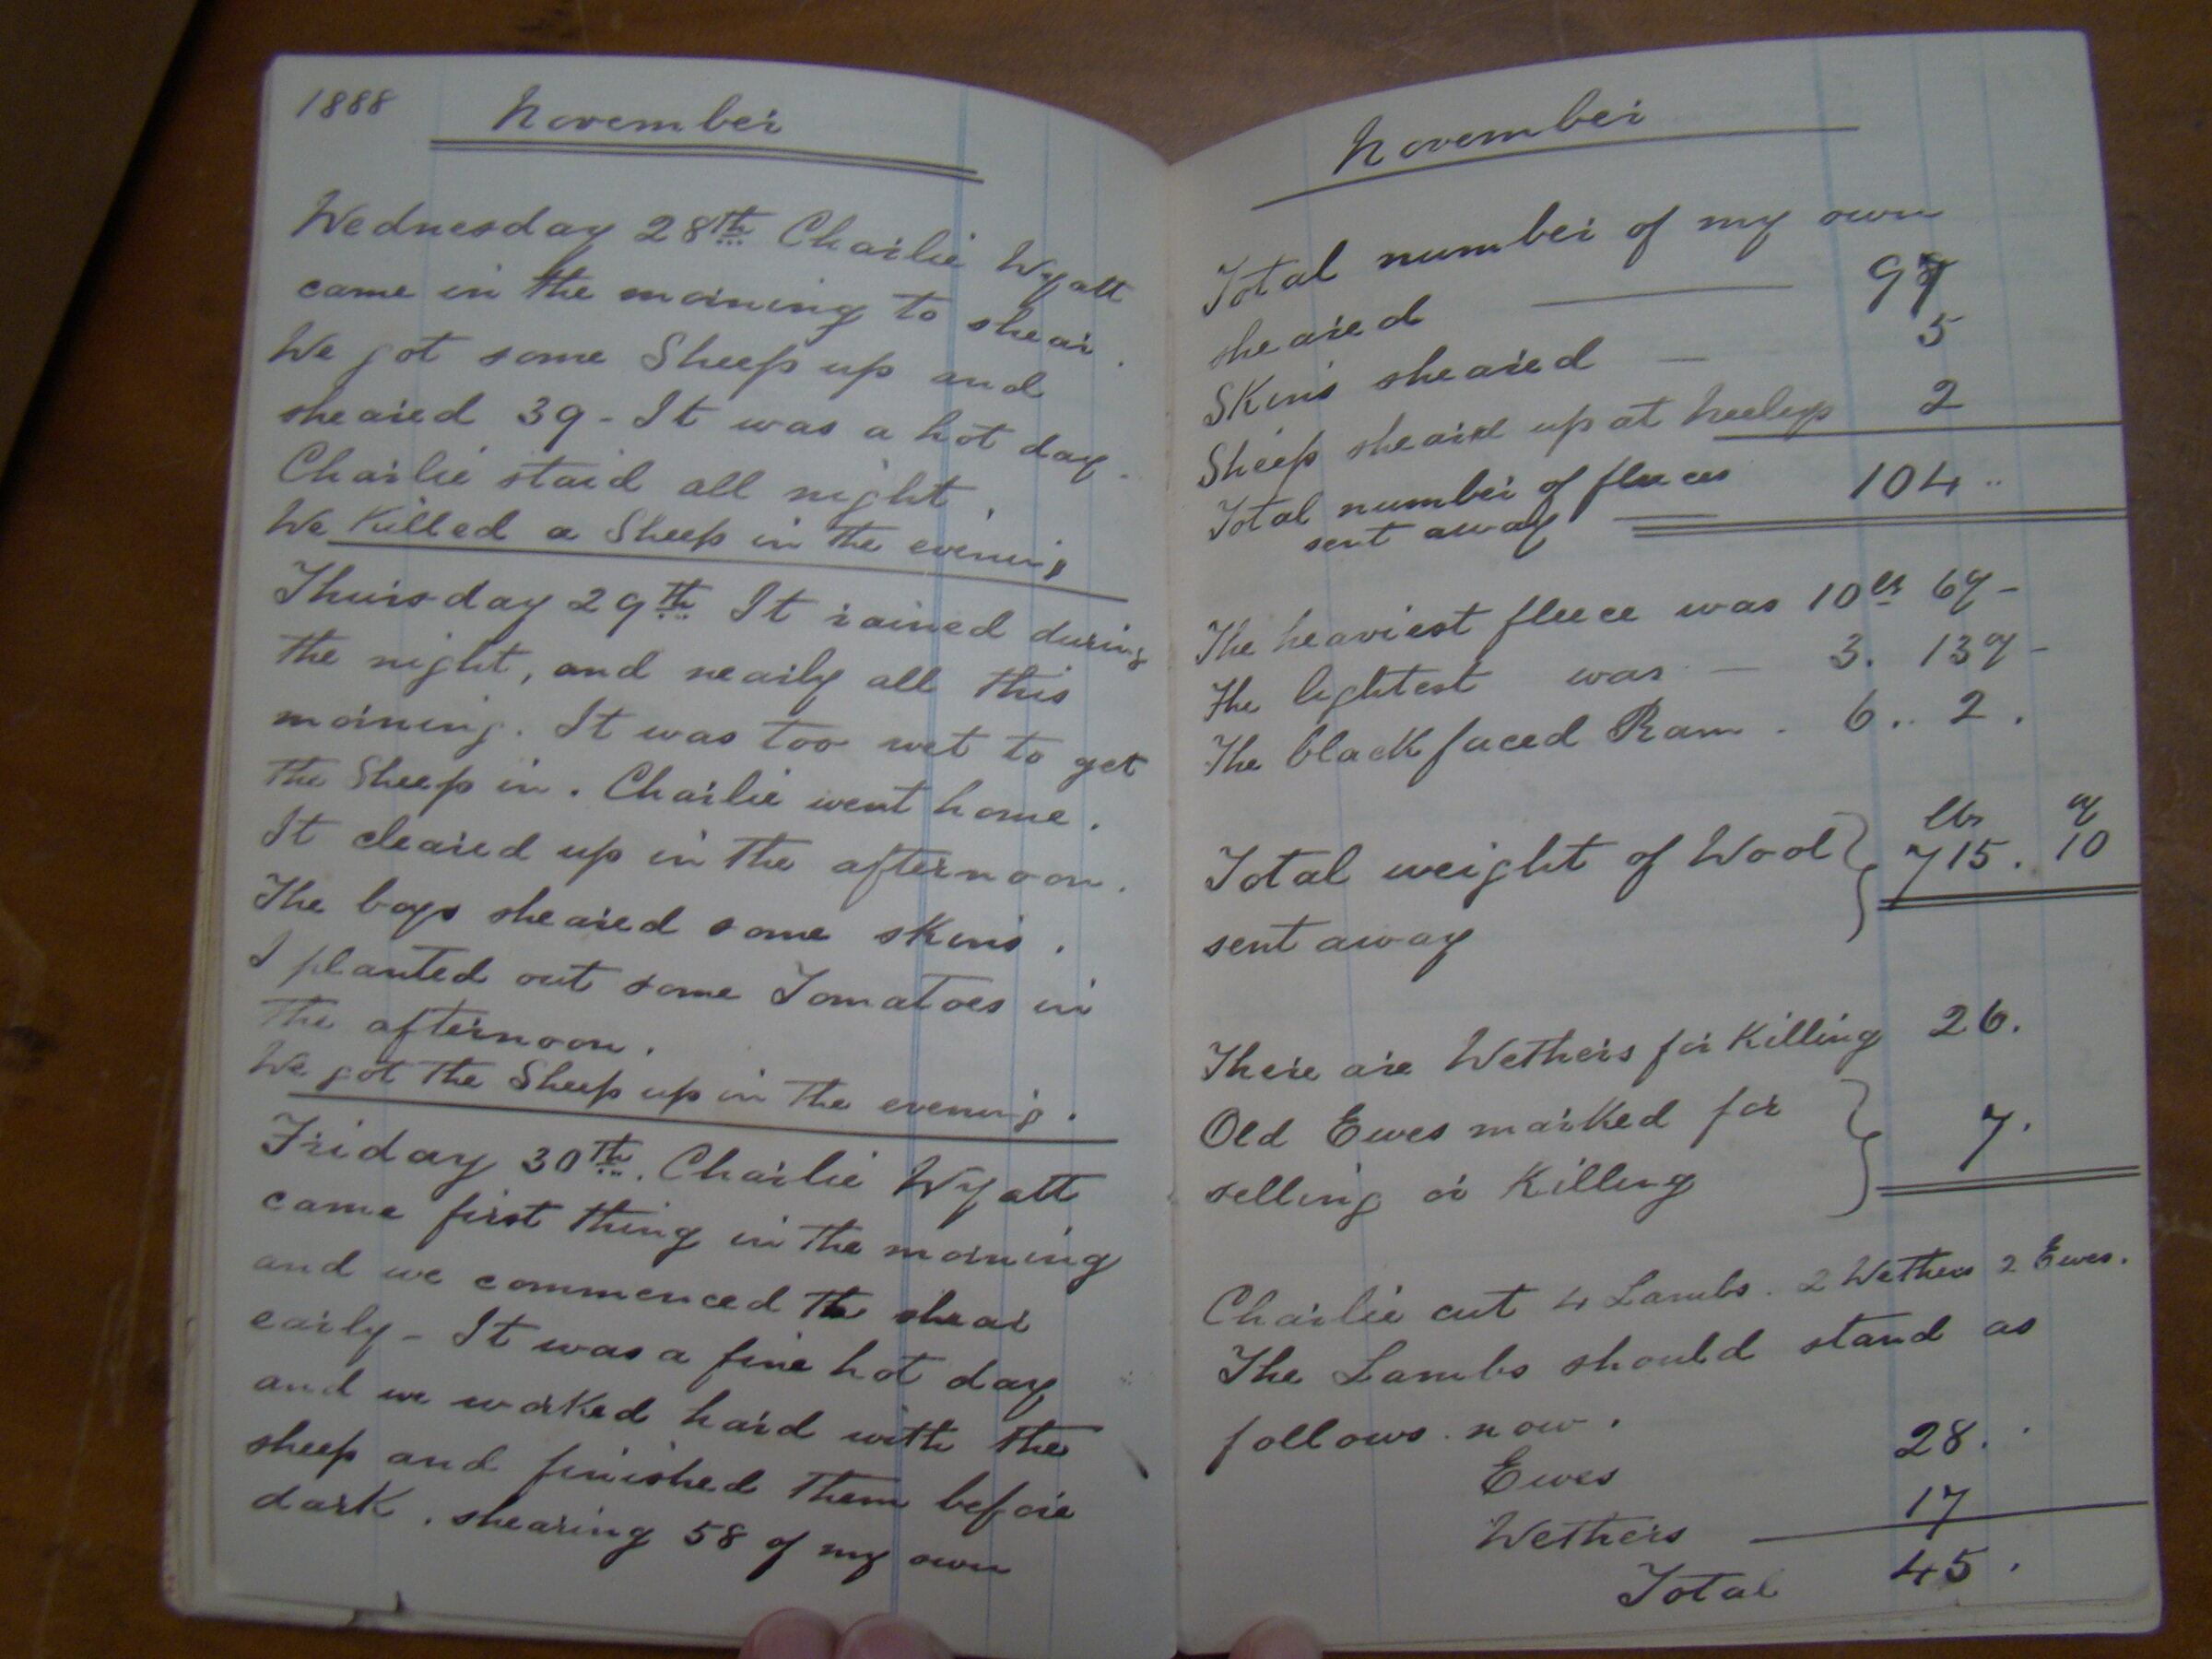 1888 November
Wednesday 28th Charlie Wyatt
came in the morning to shear.
We got some Sheep up and
sheared 39 - It was a hot day -
Charlie staid all night.
We Killed a Sheep in the evening
Thursday 29th It rained during
the night, and nearly all this
morning. It was too wet to get
the Sheep in. Charlie went home.
It cleared up in the afternoon.
The boys sheared some skins.
I planted out some Tomatoes in
the afternoon.
We got the Sheep up in the evening.
Friday 30th. Charlie Wyatt
came first thing in the morning
and we commenced to shear
early - It was a fine hot day
and we worked hard with the
sheep and finished them before
dark. shearing 58 of my own
November
Total number of my own
sheared — 97
Skins sheared — 5
Sheep sheared up at 2
Total number of fleeces 104
sent away
The heaviest fleece was 10 lbs 6 oz -
The lightest was — 3. 13 oz -
The black faced Ram. 6.. 2.
lbs oz
Total weight of Wool 715. 10
sent away
There are Wethers for Killing 26.
Old Ewes marked for 7.
selling or Killing
Charlie cut 4 Lambs. 2 Wethers 2 Ewes.
The Lambs should stand as
follows now.
Ewes 28.
Wethers — 17
Total 45.